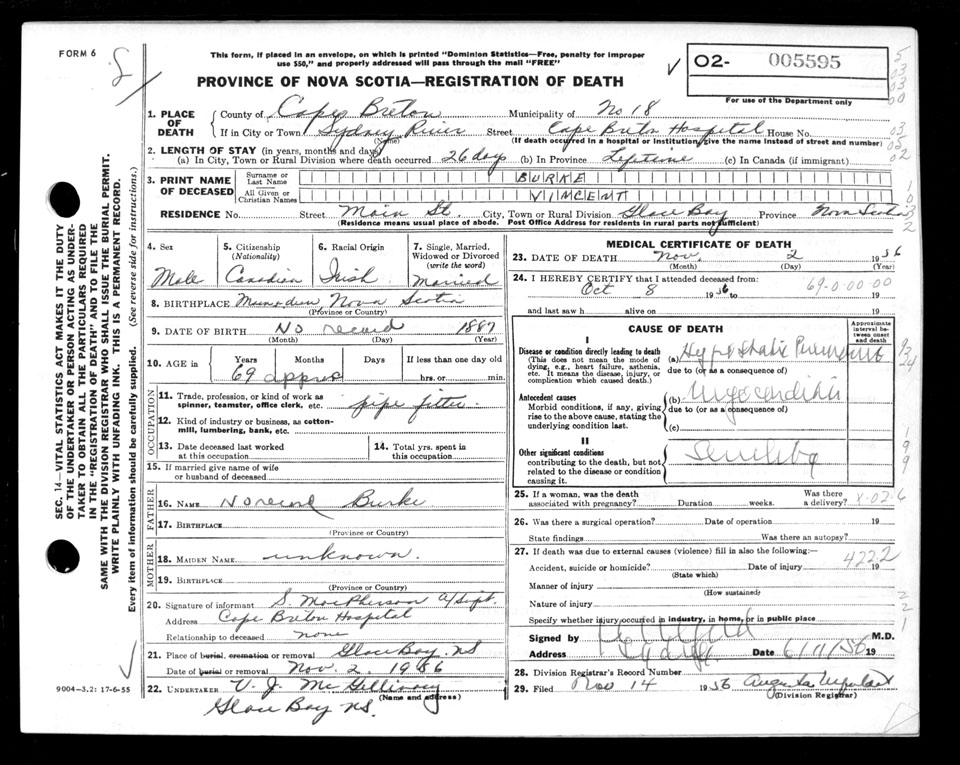 FORM 6
This form, if placed in an envelope, on which is printed "Dominion Statistics—Free, penalty for improper
use $50," and properly addressed will pass through the mail "FREE"
PROVINCE OF NOVA SCOTIA—REGISTRATION OF DEATH
O2- 005595
For use of the Department only
1. PLACE OF DEATH
County of Cape Breton Municipality of No 18
If in City or Town Sydney River Street Cape Breton Hospital House No.
(Name) (If death occurred in a hospital or institution, give the name instead of street and number)
2. LENGTH OF STAY (in years, months and days)
(a) In City, Town or Rural Division where death occurred 26 days (b) In Province Lifetime (c) In Canada (if immigrant)
3. PRINT NAME OF DECEASED
Surname or Last Name BURKE
All Given or Christian Names VINCENT
RESIDENCE No. Street Main St. City, Town or Rural Division Glace Bay Province Nova Scotia
(Residence means usual place of abode. Post Office Address for residents in rural parts not sufficient)
4. Sex Male
5. Citizenship (Nationality) Canadian
6. Racial Origin Irish
7. Single, Married, Widowed or Divorced (write the word) Married
8. BIRTHPLACE Nova Scotia
(Province or Country)
9. DATE OF BIRTH No record 1887
(Month) (Day) (Year)
10. AGE in Years Months Days If less than one day old
69 approx hrs. or min.
OCCUPATION
11. Trade, profession, or kind of work as spinner, teamster, office clerk, etc. pipe fitter
12. Kind of industry or business, as cotton-mill, lumbering, bank, etc.
13. Date deceased last worked at this occupation
14. Total yrs. spent in this occupation
15. If married give name of wife or husband of deceased
FATHER
16. NAME No record Burke
17. BIRTHPLACE
(Province or Country)
MOTHER
18. MAIDEN NAME unknown.
19. BIRTHPLACE
(Province or Country)
20. Signature of informant S. MacPherson A/Supt.
Address Cape Breton Hospital
Relationship to deceased none
21. Place of burial, cremation or removal Glace Bay, NS
Date of burial or removal Nov. 2, 1956
22. UNDERTAKER V. J. McGillivray
(Name and address)
Glace Bay NS.
9004-3.2: 17-6-55
MEDICAL CERTIFICATE OF DEATH
23. DATE OF DEATH Nov. 2 1956
(Month) (Day) (Year)
24. I HEREBY CERTIFY that I attended deceased from:
Oct 8 1956 to 19
69-0-00-00
and last saw h alive on 19
CAUSE OF DEATH
Approximate interval between onset and death
I
Disease or condition directly leading to death
(This does not mean the mode of dying, e.g., heart failure, asthenia, etc. It means the disease, injury, or complication which caused death.)
(a) Hypostatic Pneumonia
due to (or as a consequence of)
Antecedent causes
Morbid conditions, if any, giving rise to the above cause, stating the underlying condition last.
(b) Myocarditis
due to (or as a consequence of)
(c)
II
Other significant conditions
contributing to the death, but not related to the disease or condition causing it.
Senility
25. If a woman, was the death associated with pregnancy? Duration weeks. Was there a delivery?
X-02-6
26. Was there a surgical operation? Date of operation 19
State findings Was there an autopsy?
27. If death was due to external causes (violence) fill in also the following:—
4222
Accident, suicide or homicide? Date of injury 19
(State which)
Manner of injury
(How sustained)
Nature of injury
Specify whether injury occurred in industry, in home, or in public place
Signed by M.D.
Address Date 6/11/56 19
28. Division Registrar's Record Number
29. Filed Nov 14 1956 Augusta
(Division Registrar)
SEC. 14—VITAL STATISTICS ACT MAKES IT THE DUTY
OF THE UNDERTAKER OR PERSON ACTING AS UNDER-
TAKER TO OBTAIN ALL THE PARTICULARS REQUIRED
IN THE "REGISTRATION OF DEATH" AND TO FILE THE
SAME WITH THE DIVISION REGISTRAR WHO SHALL ISSUE THE BURIAL PERMIT.
WRITE PLAINLY WITH UNFADING INK. THIS IS A PERMANENT RECORD.
Every item of information should be carefully supplied. (See reverse side for instructions.)